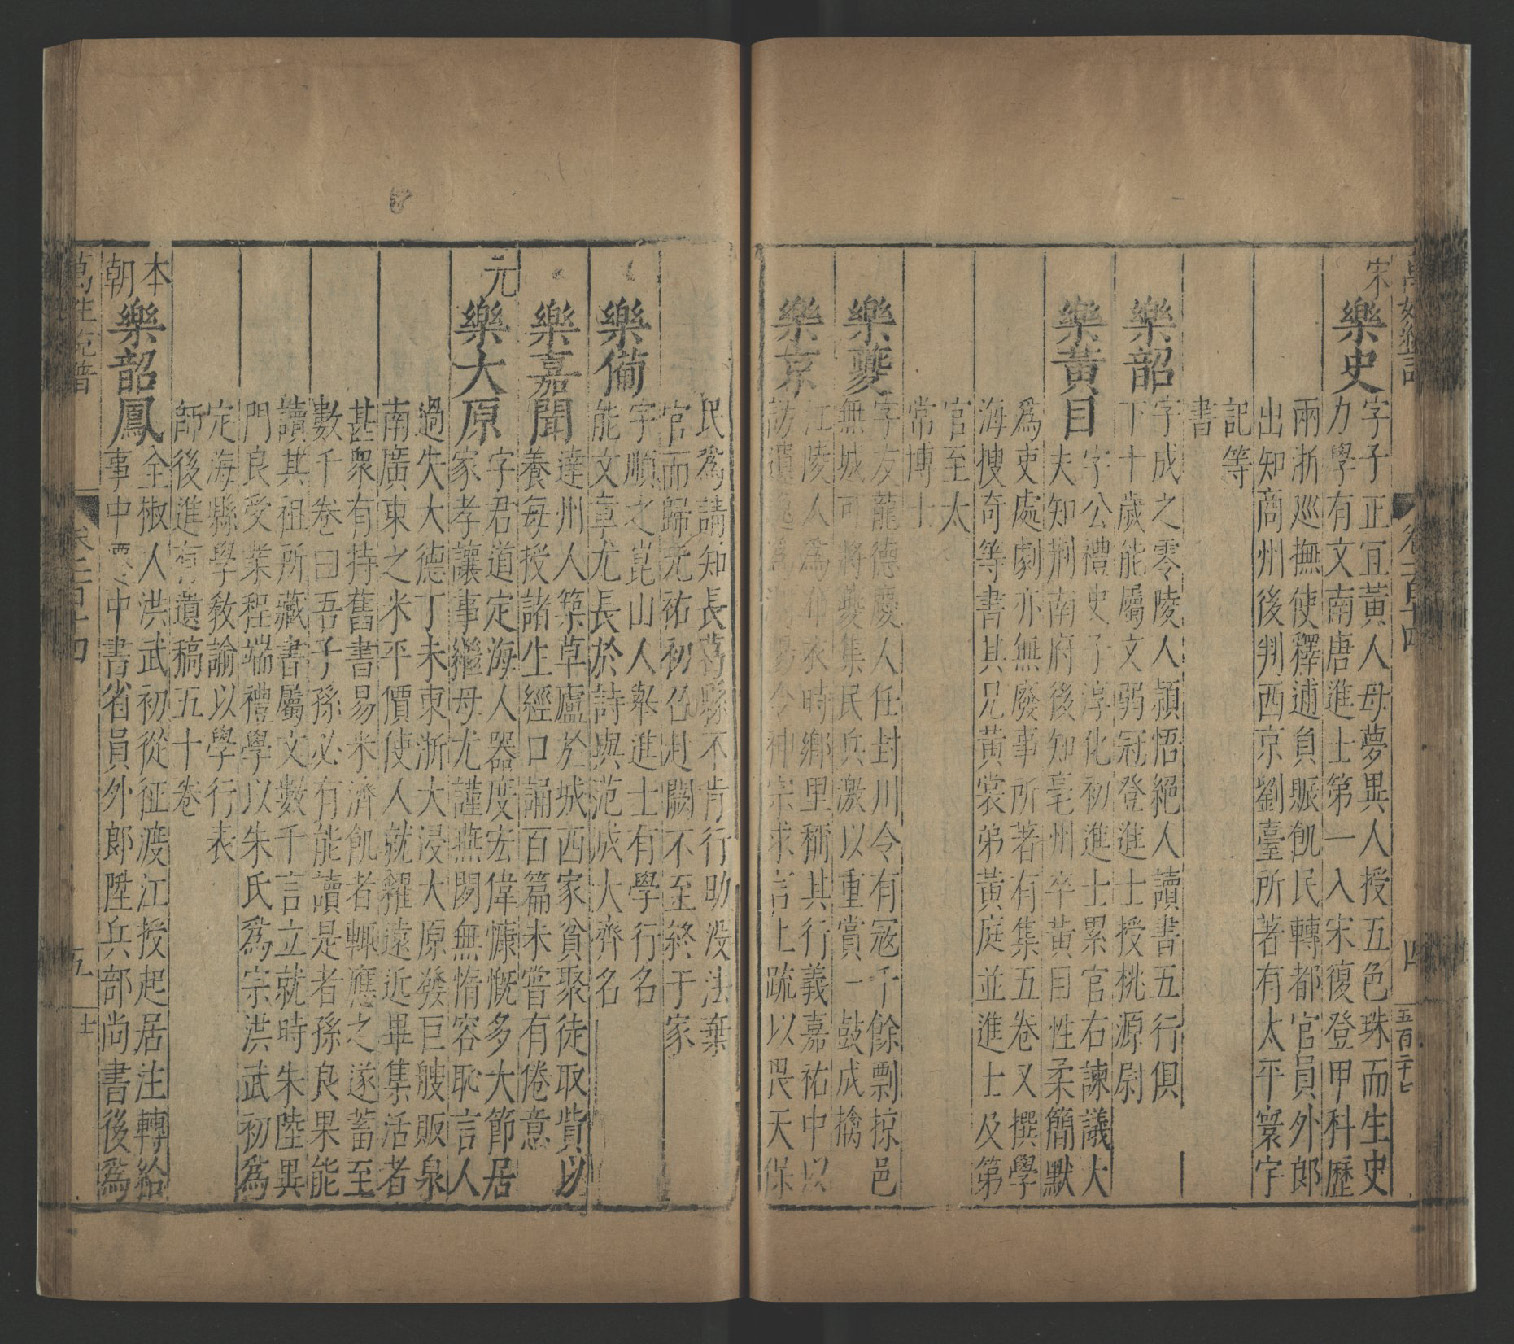 宋
樂史
字子正宜黃人母夢異人授五色珠而生史
力學有文南唐進士第一入宋復登甲科歷
兩浙巡撫使釋逋負賑飢民轉都官員外郎
出知商州後判西京劉臺所著有太平寰宇
記等
書
樂韶
字成之零陵人頴悟絕人讀書五行俱
下十歲能屬文弱冠登進士授桃源尉
樂黃目
字公禮史子淳化初進士累官右諫議大
夫知荆南府後知亳州卒黃目性柔簡默
為吏處劇亦無廢事所著有集五卷又撰學
海搜奇等書其兄黃裳弟黃庭並進士及第
官至太
常博士
樂夔
字友龍德慶人任封川令有寇千餘剽掠邑
無城可將夔集民兵激以重賞一鼓成擒
樂京
江陵人為布衣時鄉里稱其行義嘉祐中以
訪遺逸為 令神宗求言上疏以畏天保
民為請知長葛縣不肯行助役法棄
官而歸元祐初召赴闕不至終于家
樂備
字順之崑山人舉進士有學行名
能文章尤長於詩與范成大齊名
樂嘉聞
達州人築草廬於城西家貧聚徒取貲以
養每授諸生經口誦百篇未嘗有倦意
元
樂大原
字君道定海人器度宏偉慷慨多大節居
家孝讓事繼母尤謹燕閑無惰容恥言人
過失大德丁未東浙大浸大原發巨艘販泉
南廣東之米平價使人就糴遠近畢集活者
甚衆有持舊書易米濟飢者輒應之遂蓄至
數千卷曰吾子孫必有能讀是者孫良果能
讀其祖所藏書屬文數千言立就時朱陸異
門良受業程端禮學以朱氏為宗洪武初為
定海縣學教諭以學行表
師後進有遺稿五十卷
本
朝
樂韶鳳
全椒人洪武初從征渡江授起居注轉給
事中 中書省員外郎陞兵部尚書後為
五
萬姓統譜
卷一百十四
四
五百二十七